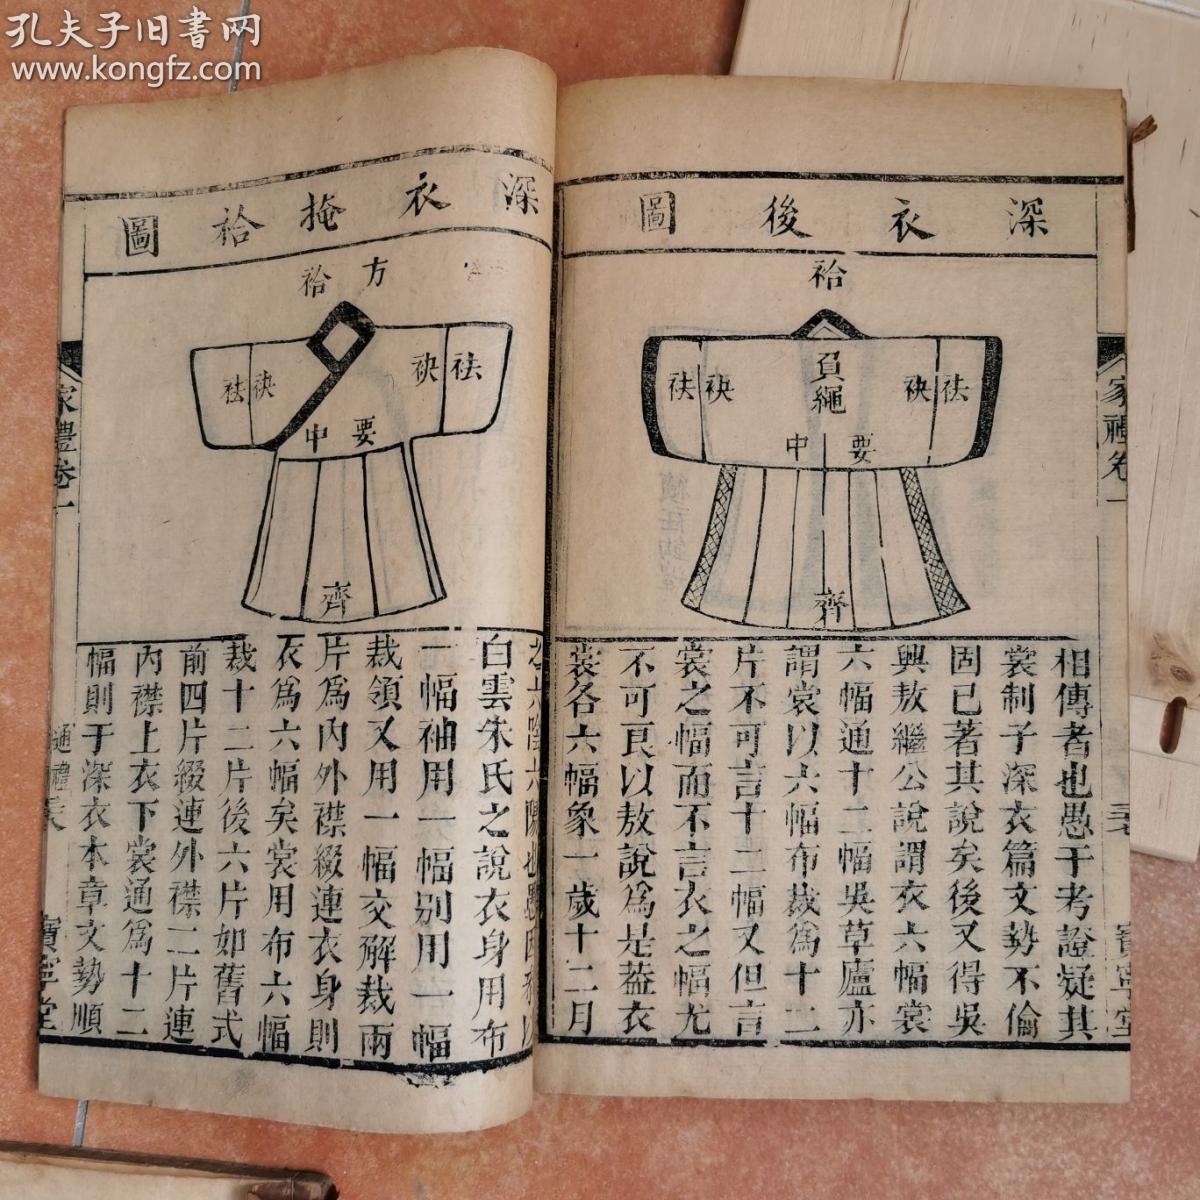 孔夫子旧書网
www.kongfz.com
深衣後圖
袷
負繩
袪
袂
袂
袪
要中
齊
相傳者也愚于考證疑其
裳制子深衣篇文勢不倫
固已著其說矣後又得吳
興敖繼公說謂衣六幅裳
六幅通十二幅吳草廬亦
謂裳以六幅布裁為十二
片不可言十二幅又但言
裳之幅而不言衣之幅尤
不可良以敖說為是葢衣
裳各六幅象一歲十二月
家禮卷一
寶寧堂
深衣掩袷圖
方袷
袪
袂
袂
袪
要中
齊
之六陰六陽也愚因
白雲朱氏之說衣身用布
一幅袖用一幅別用一幅
裁領又用一幅交解裁兩
片為內外襟綴連衣身則
衣為六幅矣裳用布六幅
裁十二片後六片如舊式
前四片綴連外襟二片連
內襟上衣下裳通為十二
幅則于深衣本章文勢順
家禮卷一
通禮
寶寧堂